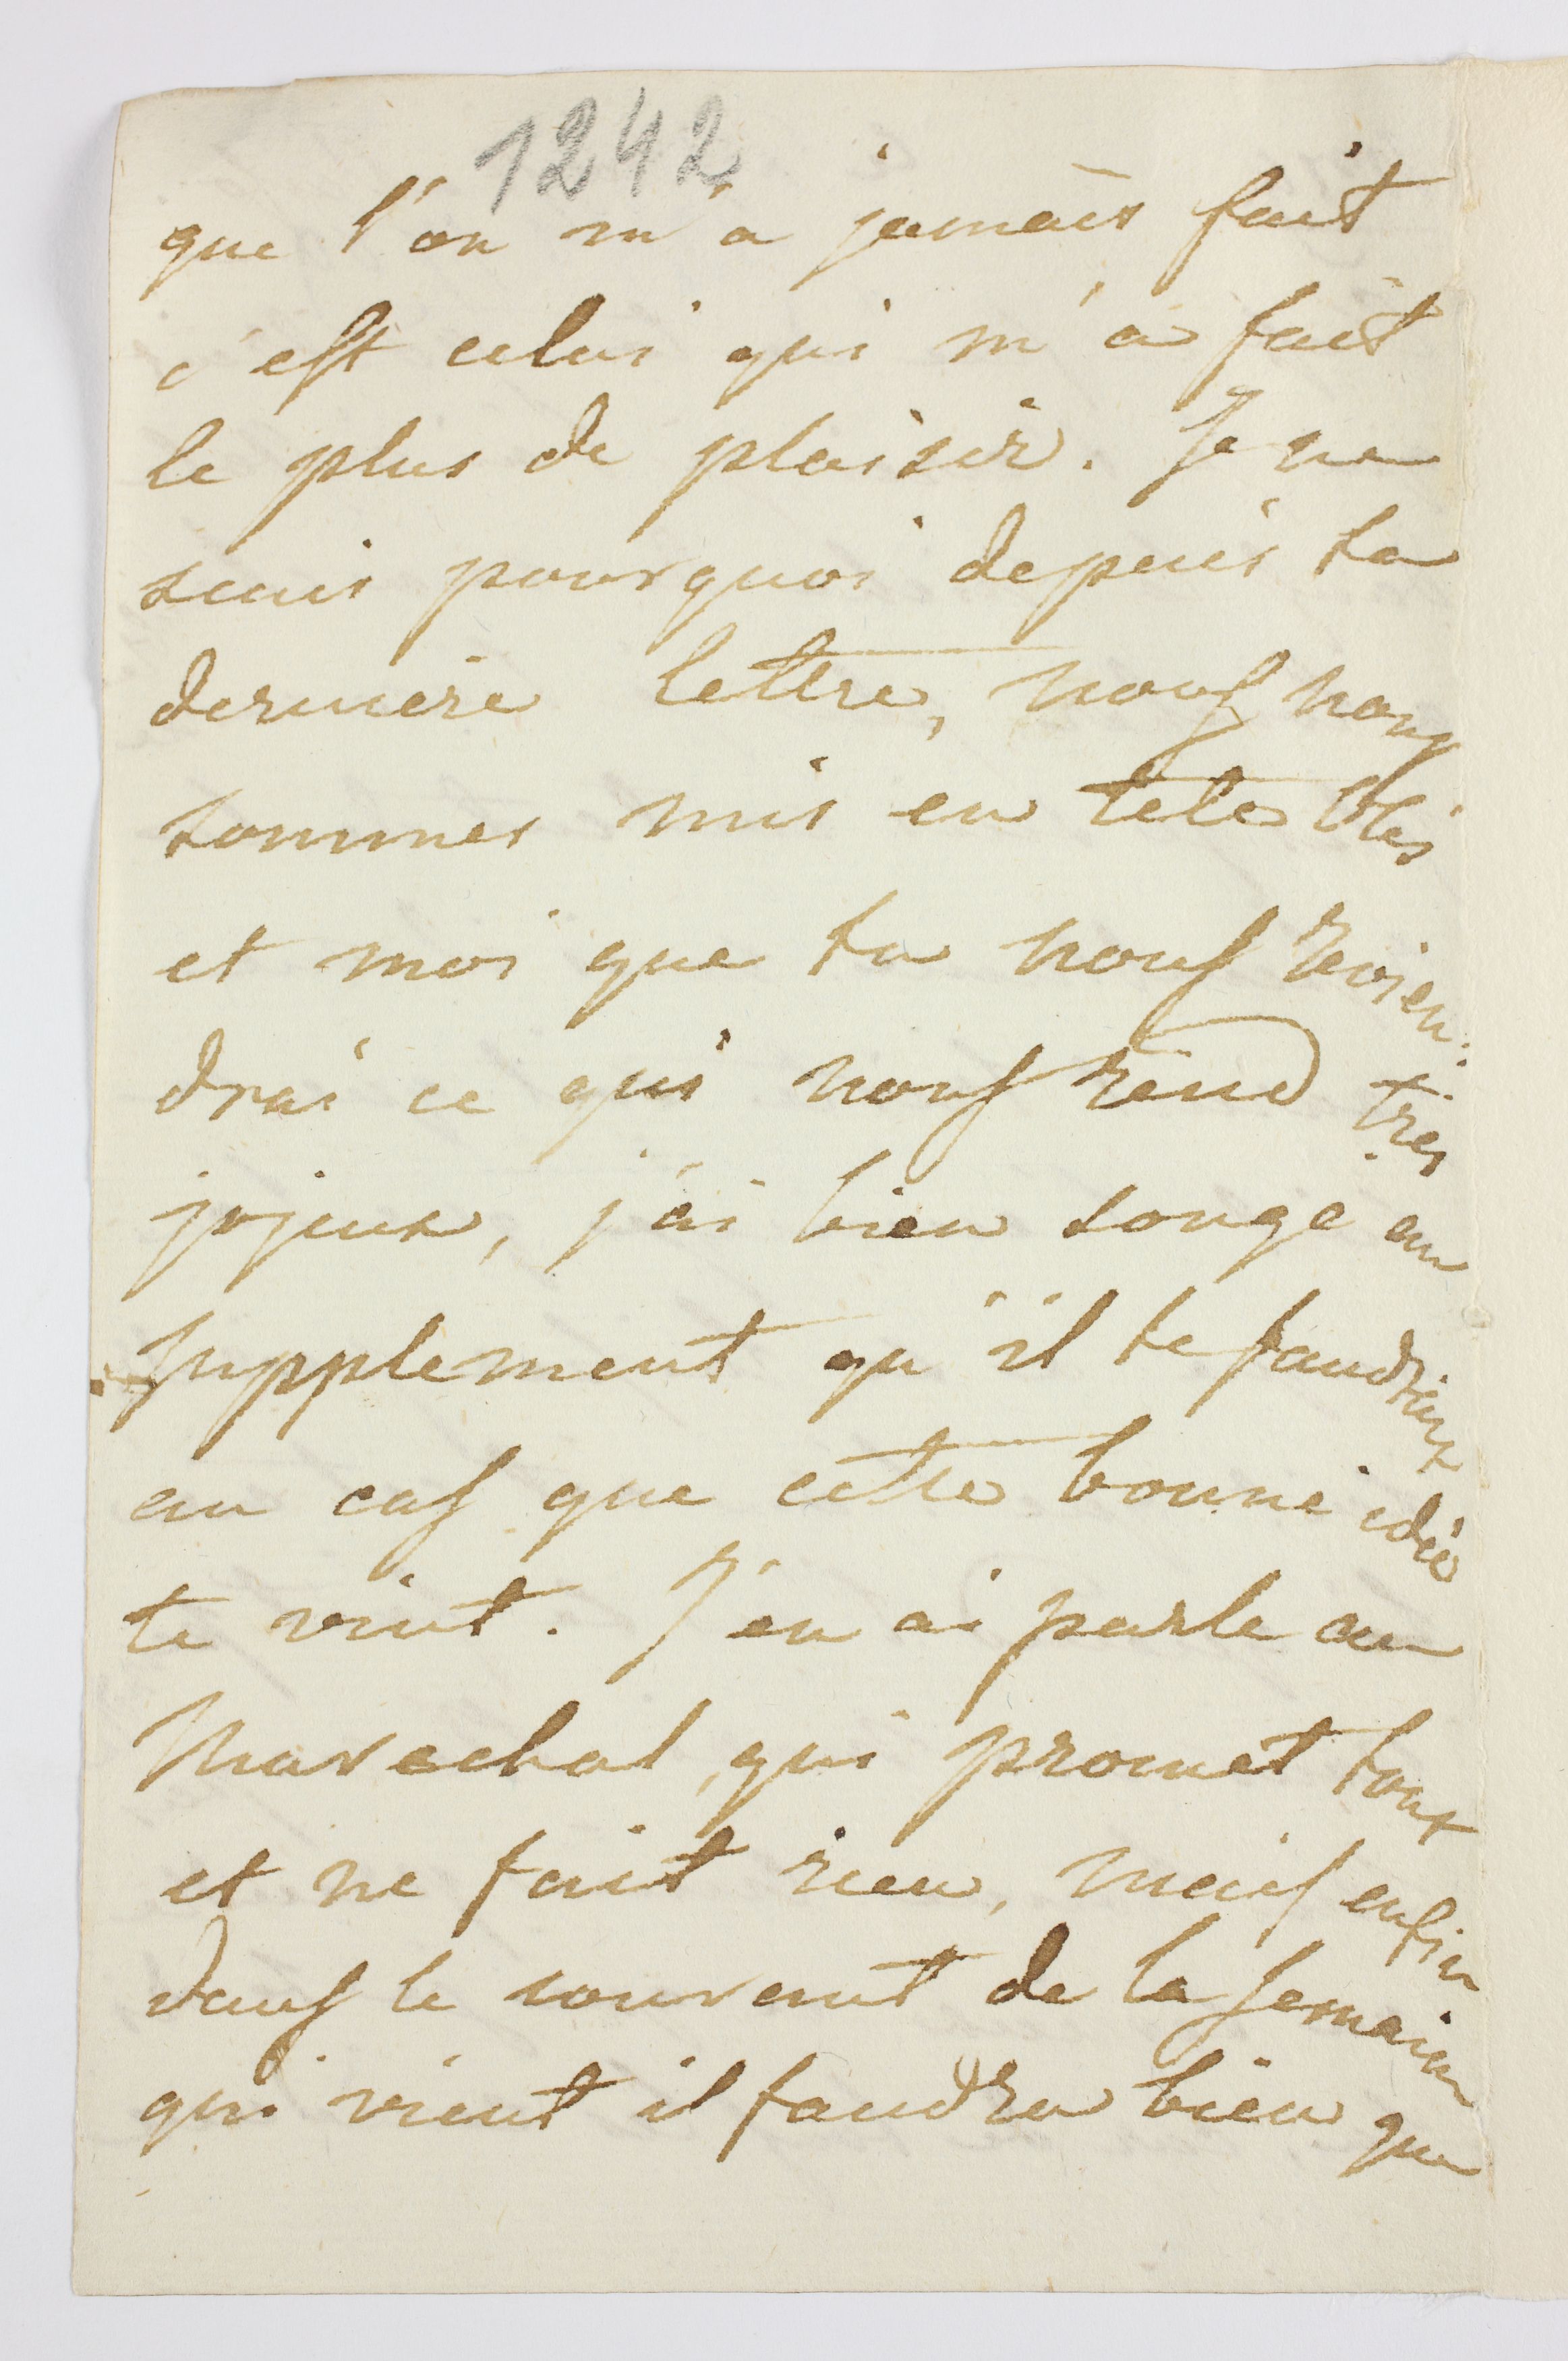 1242
que l'on m'a jamais fait
c'est celui qui m'a fait
le plus de plaisir. Je ne
scais pourquoi depuis ta
derniere lettre, nous nous
sommes mis en tete
et moi que tu nous revien:
drai ce qui nous rend tres
jojeux, j'ai bien songe au
supplement qu'il te faudrait
au cas que cette bonne idée
te vint. J'en ai parle au
Marechal, qui promet tout
et ne fait rien, mais enfin
dans le courent de la semaine
qui vient il faudra bien que